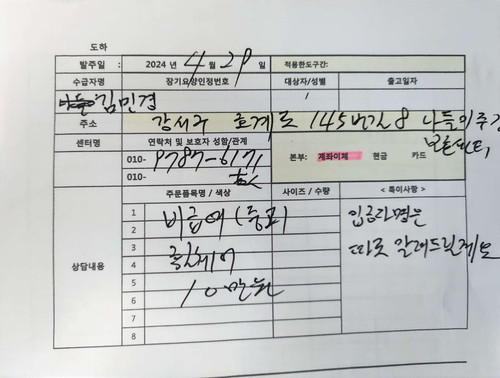 도하
발주일 : 2024 년 4 월 29 일 적용한도구간:
수급자명 장기요양인정번호 대상자/성별 출고일자
김민경 /
주소 강서구 145번길 8 나들이주간
보호센터,
센터명 연락처 및 보호자 성함/관계 본부: 계좌이체 현금 카드
010- 9787-6171
010-
상담내용 주문품목명 / 색상 사이즈 / 수량 < 특이사항 >
1 비급여 (중고) 입금자명은
2
3 휠체어 따로 알려드린게요
4
5 10만원
6
7
8